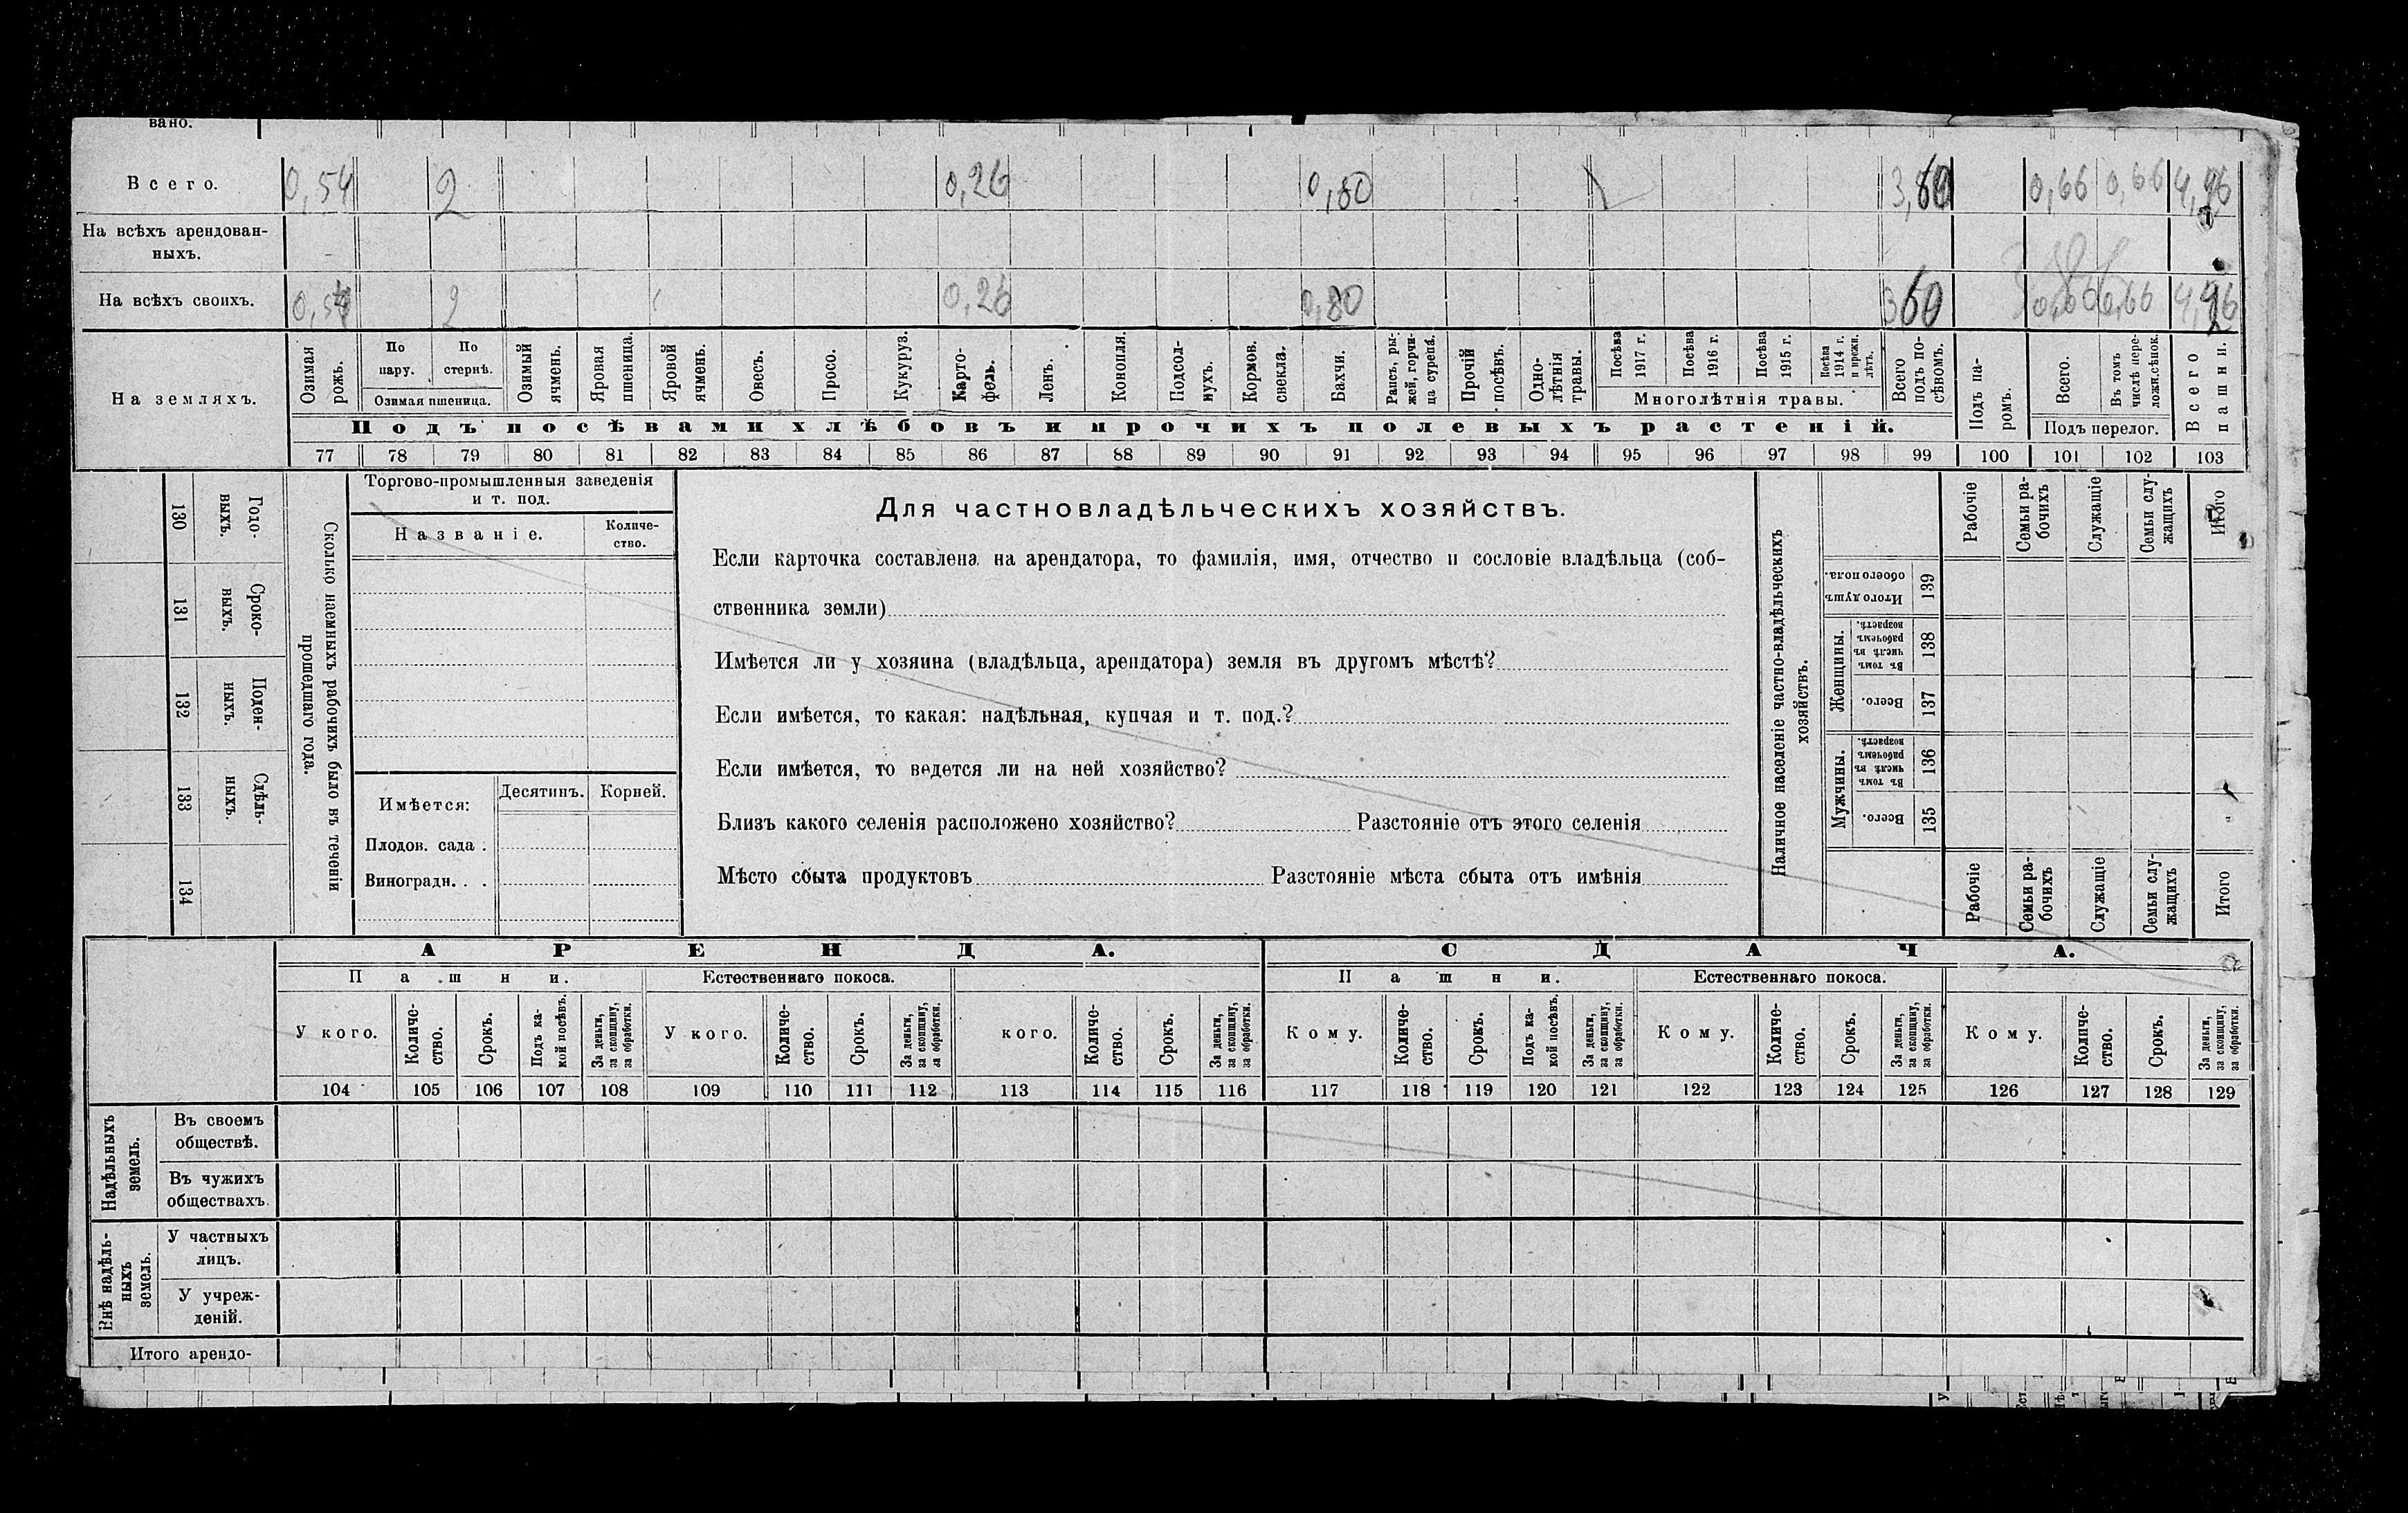 вано.
Всего. 0,54 2 0,26 0,80 3,60 0,66 0,66 4,26
На всѣхъ арендован-
ныхъ.
На всѣхъ своихъ. 0,54 2 0,26 0,80 3 60 0,66 4,26
На земляхъ.
Озимая рожь.
По пару.
По стернѣ.
Озимая пшеница.
Озимый ячмень.
Яровая пшеница.
Яровой ячмень.
Овесъ.
Просо.
Кукуруз.
Карто-
фель.
Ленъ.
Конопля.
Подсол-
нухъ.
Кормов.
свекла.
Бахчи.
Рапсъ, ры-
жей, горчи-
ца сурепа.
Прочій
посѣвъ.
Одно-
лѣтнія
травы.
Посѣва
1917 г.
Посѣва
1916 г.
Посѣва
1915 г.
Посѣва
1914 г.
и прежн.
лѣтъ.
Многолѣтнія травы.
Всего
подъ по-
сѣвомъ.
Подъ па-
ромъ.
Всего.
Въ томъ
числѣ пере-
ложн.сѣнок.
Подъ перелог.
Всего
пашни.
Подъ посѣвами хлѣбовъ и прочихъ полевыхъ растеній.
77 78 79 80 81 82 83 84 85 86 87 88 89 90 91 92 93 94 95 96 97 98 99 100 101 102 103
Сколько наемныхъ рабочихъ было въ теченіи
прошедшаго года.
Годо-
выхъ.
130
Сроко-
выхъ.
131
Поден-
ныхъ.
132
Сдѣль-
ныхъ.
133
134
Торгово-промышленныя заведенія
и т. под.
Названіе.
Количе-
ство.
Имѣется:
Десятинъ.
Корней.
Плодов. сада .
Виноградн. . .
Для частновладѣльческихъ хозяйствъ.
Если карточка составлена на арендатора, то фамилія, имя, отчество и сословіе владѣльца (соб-
ственника земли)
Имѣется ли у хозяина (владѣльца, арендатора) земля въ другомъ мѣстѣ?
Если имѣется, то какая: надѣльная, купчая и т. под.?
Если имѣется, то ведется ли на ней хозяйство?
Близъ какого селенія расположено хозяйство? Разстояніе отъ этого селенія
Мѣсто сбыта продуктовъ Разстояніе мѣста сбыта отъ имѣнія
Наличное населеніе частно-владѣльческихъ
хозяйствъ.
Рабочіе
Семьи ра-
бочихъ
Служащіе
Семьи слу-
жащихъ
Итого
Итого душъ
обоего пола.
139
Женщины.
Въ томъ
числѣ въ
рабочемъ
возрастѣ.
138
Всего.
137
Мужчины.
Въ томъ
числѣ въ
рабочемъ
возрастѣ.
136
Всего.
135
Рабочіе
Семьи ра-
бочихъ
Служащіе
Семьи слу-
жащихъ
Итого
АРЕНДА. СДАЧА.
Пашни. Естественнаго покоса. Пашни. Естественнаго покоса.
У кого.
Количе-
ство.
Срокъ.
Подъ ка-
кой посѣвъ.
За деньги,
за скопщину,
за обработки.
У кого.
Количе-
ство.
Срокъ.
За деньги,
за скопщину,
за обработки.
кого.
Количе-
ство.
Срокъ.
За деньги,
за скопщину,
за обработки.
Кому.
Количе-
ство.
Срокъ.
Подъ ка-
кой посѣвъ.
За деньги,
за скопщину,
за обработки.
Кому.
Количе-
ство.
Срокъ.
За деньги,
за скопщину,
за обработки.
Кому.
Количе-
ство.
Срокъ.
За деньги,
за скопщину,
за обработки.
104 105 106 107 108 109 110 111 112 113 114 115 116 117 118 119 120 121 122 123 124 125 126 127 128 129
Надѣльныхъ
земель.
Въ своемъ
обществѣ.
Въ чужихъ
обществахъ.
Внѣ надѣль-
ныхъ
земель.
У частныхъ
лицъ.
У учреж-
деній.
Итого арендо-